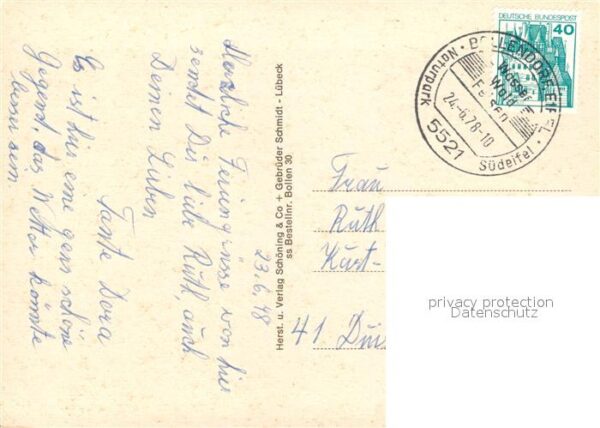 Herzliche Feriengrüsse von hier
sendet Dir liebe Ruth, auch
Deinen Lieben
Tante Dora
Es ist hier eine ganz schöne
Gegend, das Wetter könnte
23.6.78
Herst. u. Verlag Schöning & Co + Gebrüder Schmidt - Lübeck
ss Bestellnr. Bollen 30
DEUTSCHE BUNDESPOST
40
BOLLENDORF-EIFEL
Naturpark
Südeifel
Wasser
Wald
Felsen
24.-6.78-10
5521
Frau
Ruth
Kurt-
41 Duis
privacy protection
Datenschutz